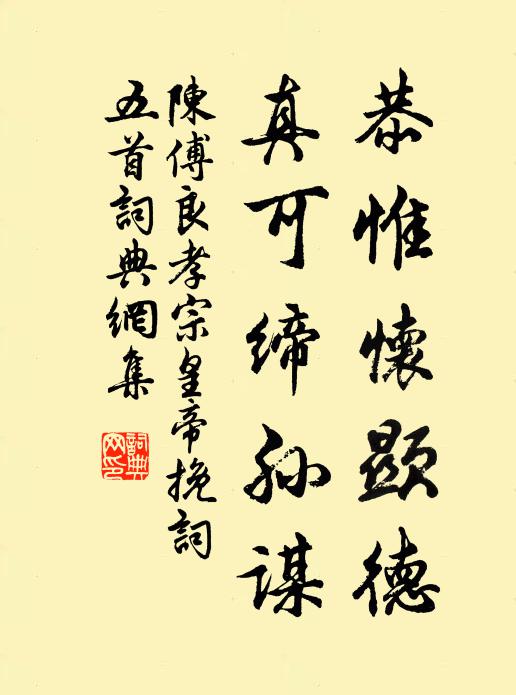 恭惟懷顯德
真可締孙謀
陳傅良孝宗皇帝挽詞
五首詞典網集
詞典
网印